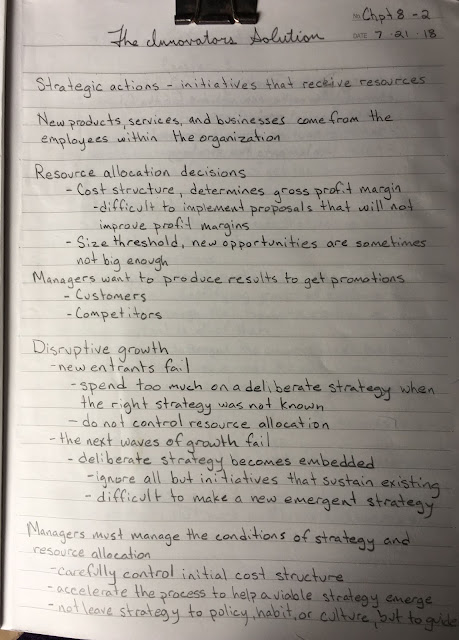 No. Chpt 8 - 2
The Innovators Solution
DATE 7 · 21 · 18
Strategic actions - initiatives that receive resources
New products, services, and businesses come from the
employees within the organization
Resource allocation decisions
- Cost structure, determines gross profit margin
- difficult to implement proposals that will not
improve profit margins
- Size threshold, new opportunities are sometimes
not big enough
Managers want to produce results to get promotions
- Customers
- Competitors
Disruptive growth
- new entrants fail
- spend too much on a deliberate strategy when
the right strategy was not known
- do not control resource allocation
- the next waves of growth fail
- deliberate strategy becomes embedded
- ignore all but initiatives that sustain existing
- difficult to make a new emergent strategy
Managers must manage the conditions of strategy and
resource allocation
- carefully control initial cost structure
- accelerate the process to help a viable strategy emerge
- not leave strategy to policy, habit, or culture, but to guide